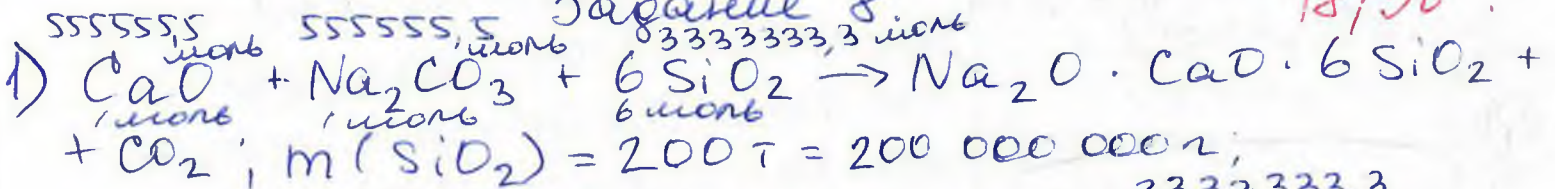 Задание 8
555555,5 моль 555555,5 моль 3333333,3 моль
1) CaO + Na₂CO₃ + 6 SiO₂ → Na₂O · CaO · 6 SiO₂ +
1 моль 1 моль 6 моль
+ CO₂ ; m (SiO₂) = 200 т = 200 000 000 г;
3333333,3